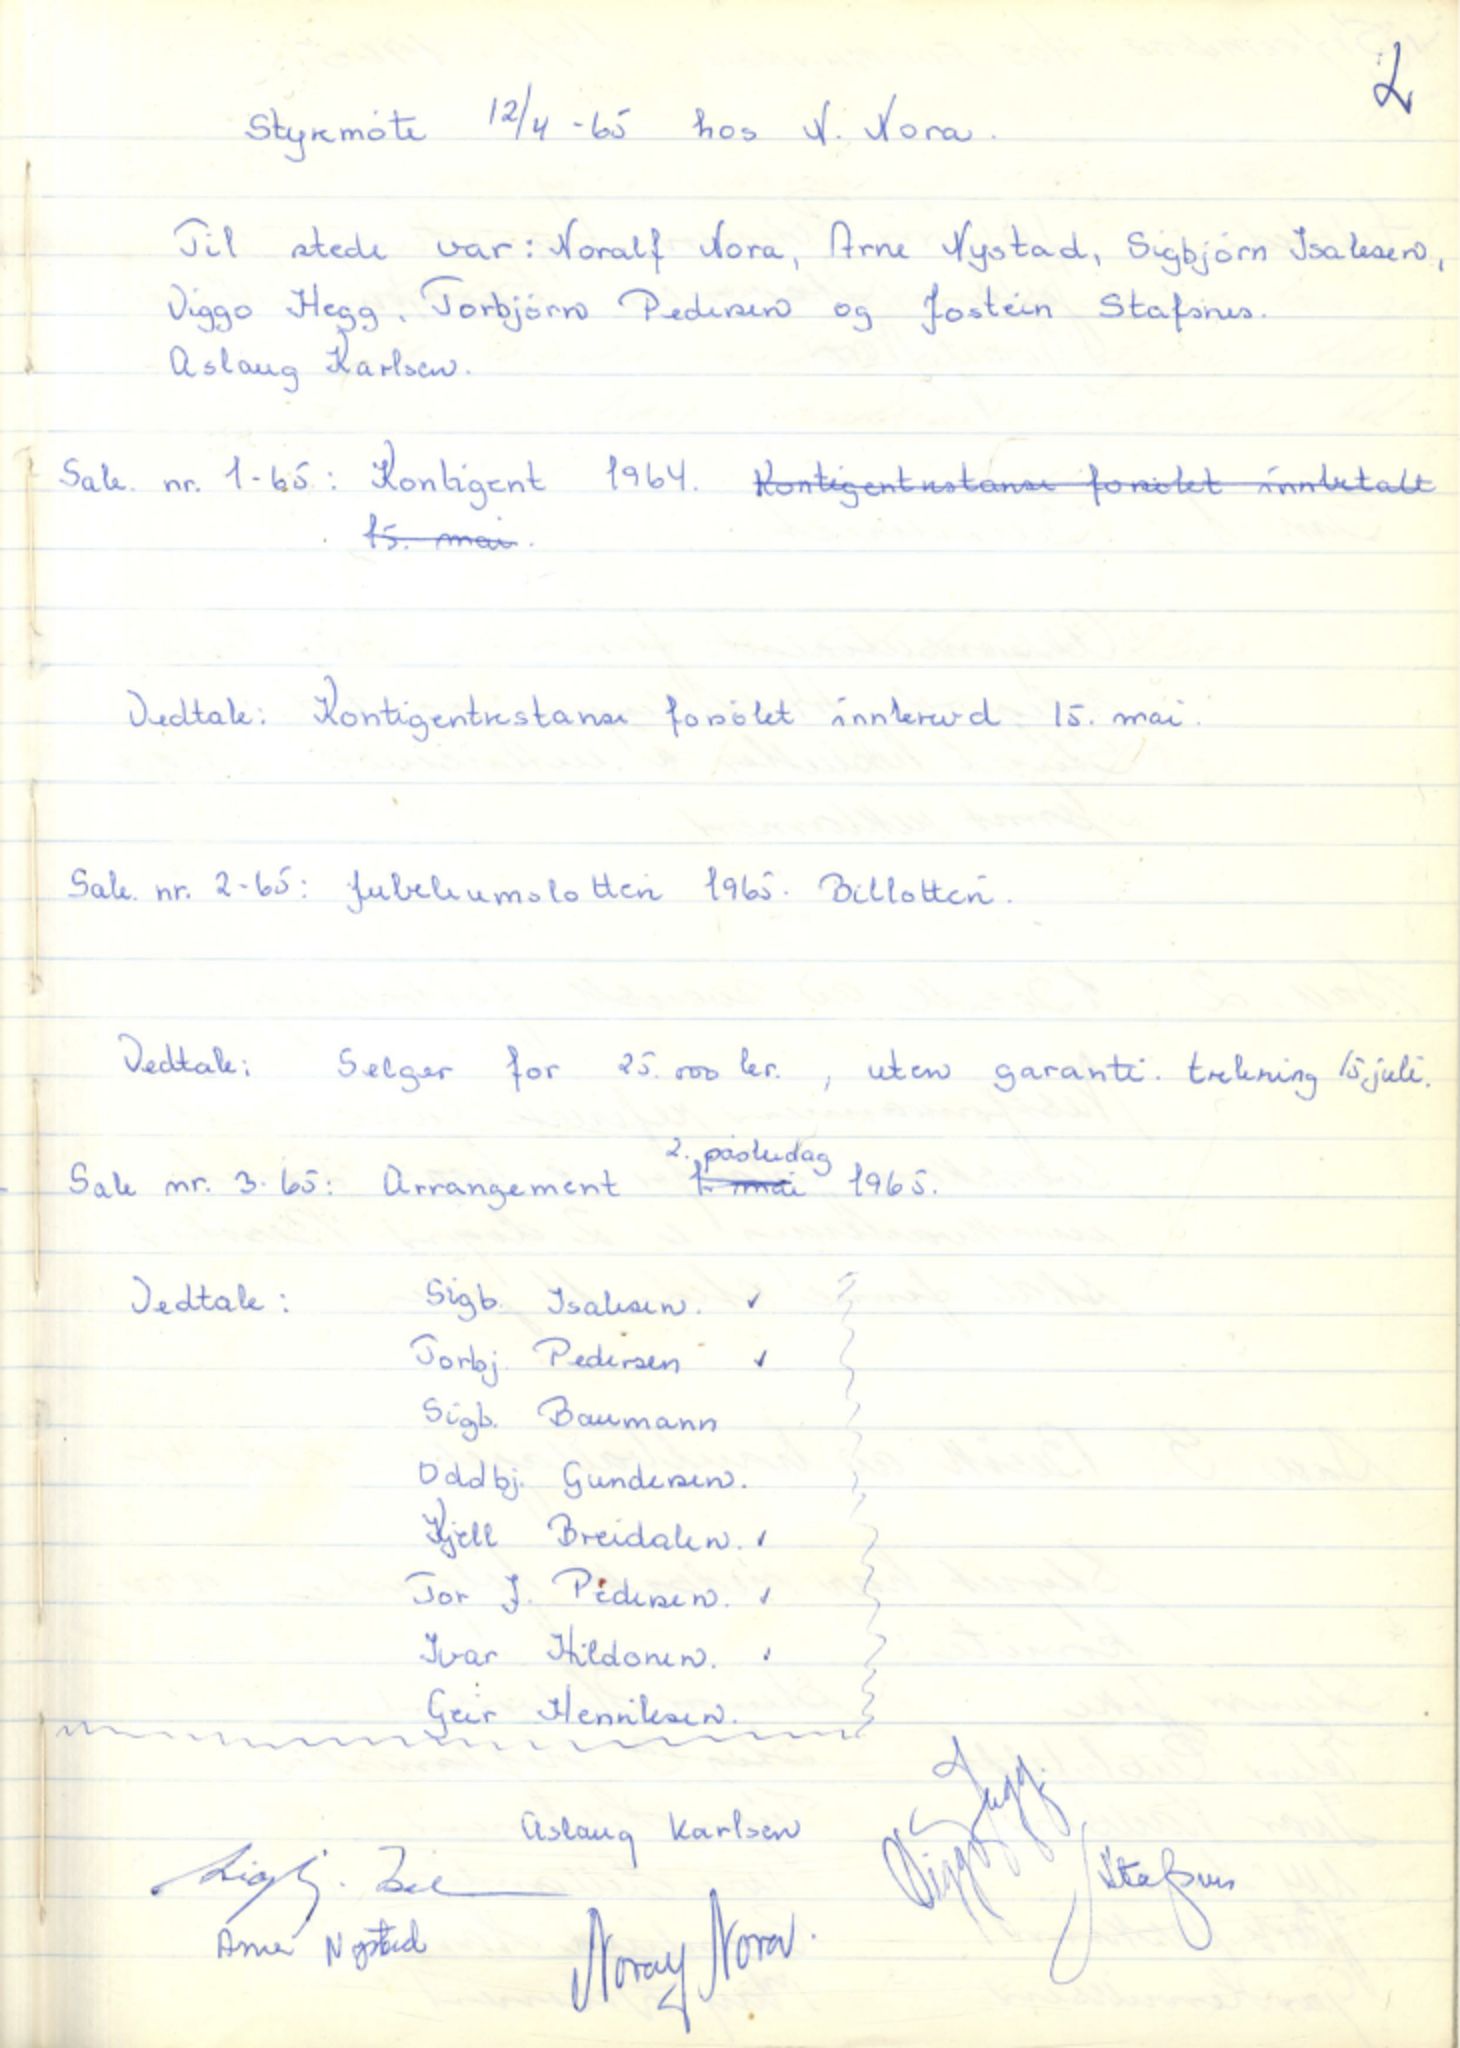 2
Styremöte 12/4-65 hos N. Nora.
Til stede var: Noralf Nora, Arne Nystad, Sigbjörn Isaksen,
Viggo Hegg, Torbjörn Pedersen og Jostein Stafsnes.
Aslaug Karlsen.
Sak. nr. 1-65: Kontigent 1964. Kontigentrestanse forsökt innbetalt
15. mai.
Vedtak: Kontigentrestanse forsökt innkrevd 15. mai.
Sak. nr. 2-65: Jubeleumslotteri 1965. Billotteri.
Vedtak: Selger for 25.000 kr., uten garanti. trekning 15 juli.
2. påskedag
Sak nr. 3-65: Arrangement 1. mai 1965.
Vedtak: Sigb. Isaksen. ✓
Torbj. Pedersen ✓
Sigb. Baumann
Oddbj. Gundersen.
Kjell Breidalen. ✓
Tor J. Pedersen. ✓
Ivar Hildonen. ✓
Geir Henriksen.
Aslaug Karlsen
Viggo Hegg.
Stafsnes
Arne Nystad
Noralf Nora.